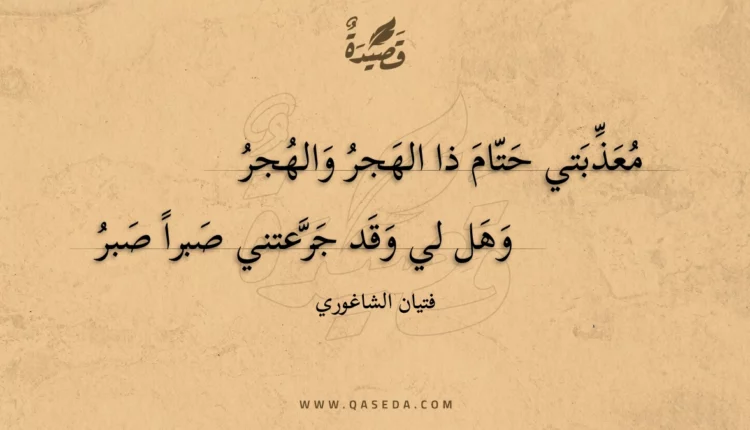 قَصِيدَةٌ
مُعَذِّبَتي حَتّامَ ذا الهَجرُ وَالهُجرُ
وَهَل لي وَقَد جَرَّعتني صَبراً صَبرُ
فتيان الشاغوري
WWW.QASEDA.COM